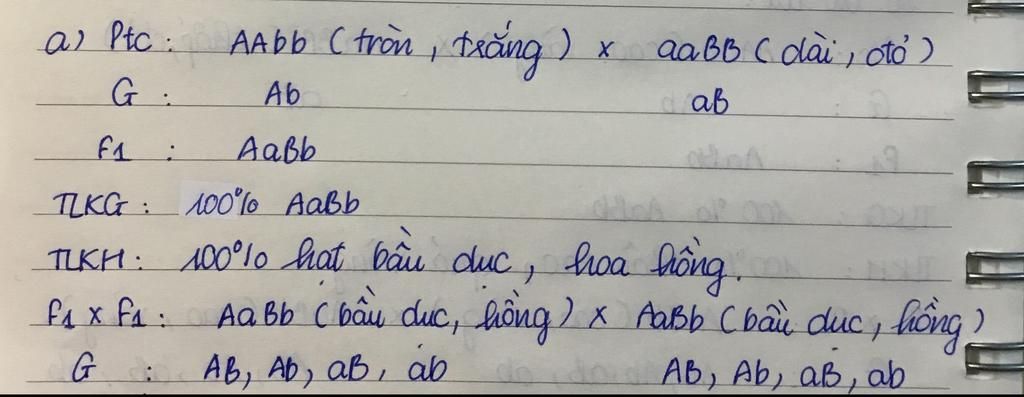 a) Ptc: AAbb (tròn, trắng) x aaBB (dài, đỏ)
G : Ab aB
F1 : AaBb
TLKG: 100% AaBb
TLKH: 100% hạt bầu dục, hoa hồng.
F1 x F1: AaBb (bầu dục, hồng) x AaBb (bầu dục, hồng)
G : AB, Ab, aB, ab AB, Ab, aB, ab